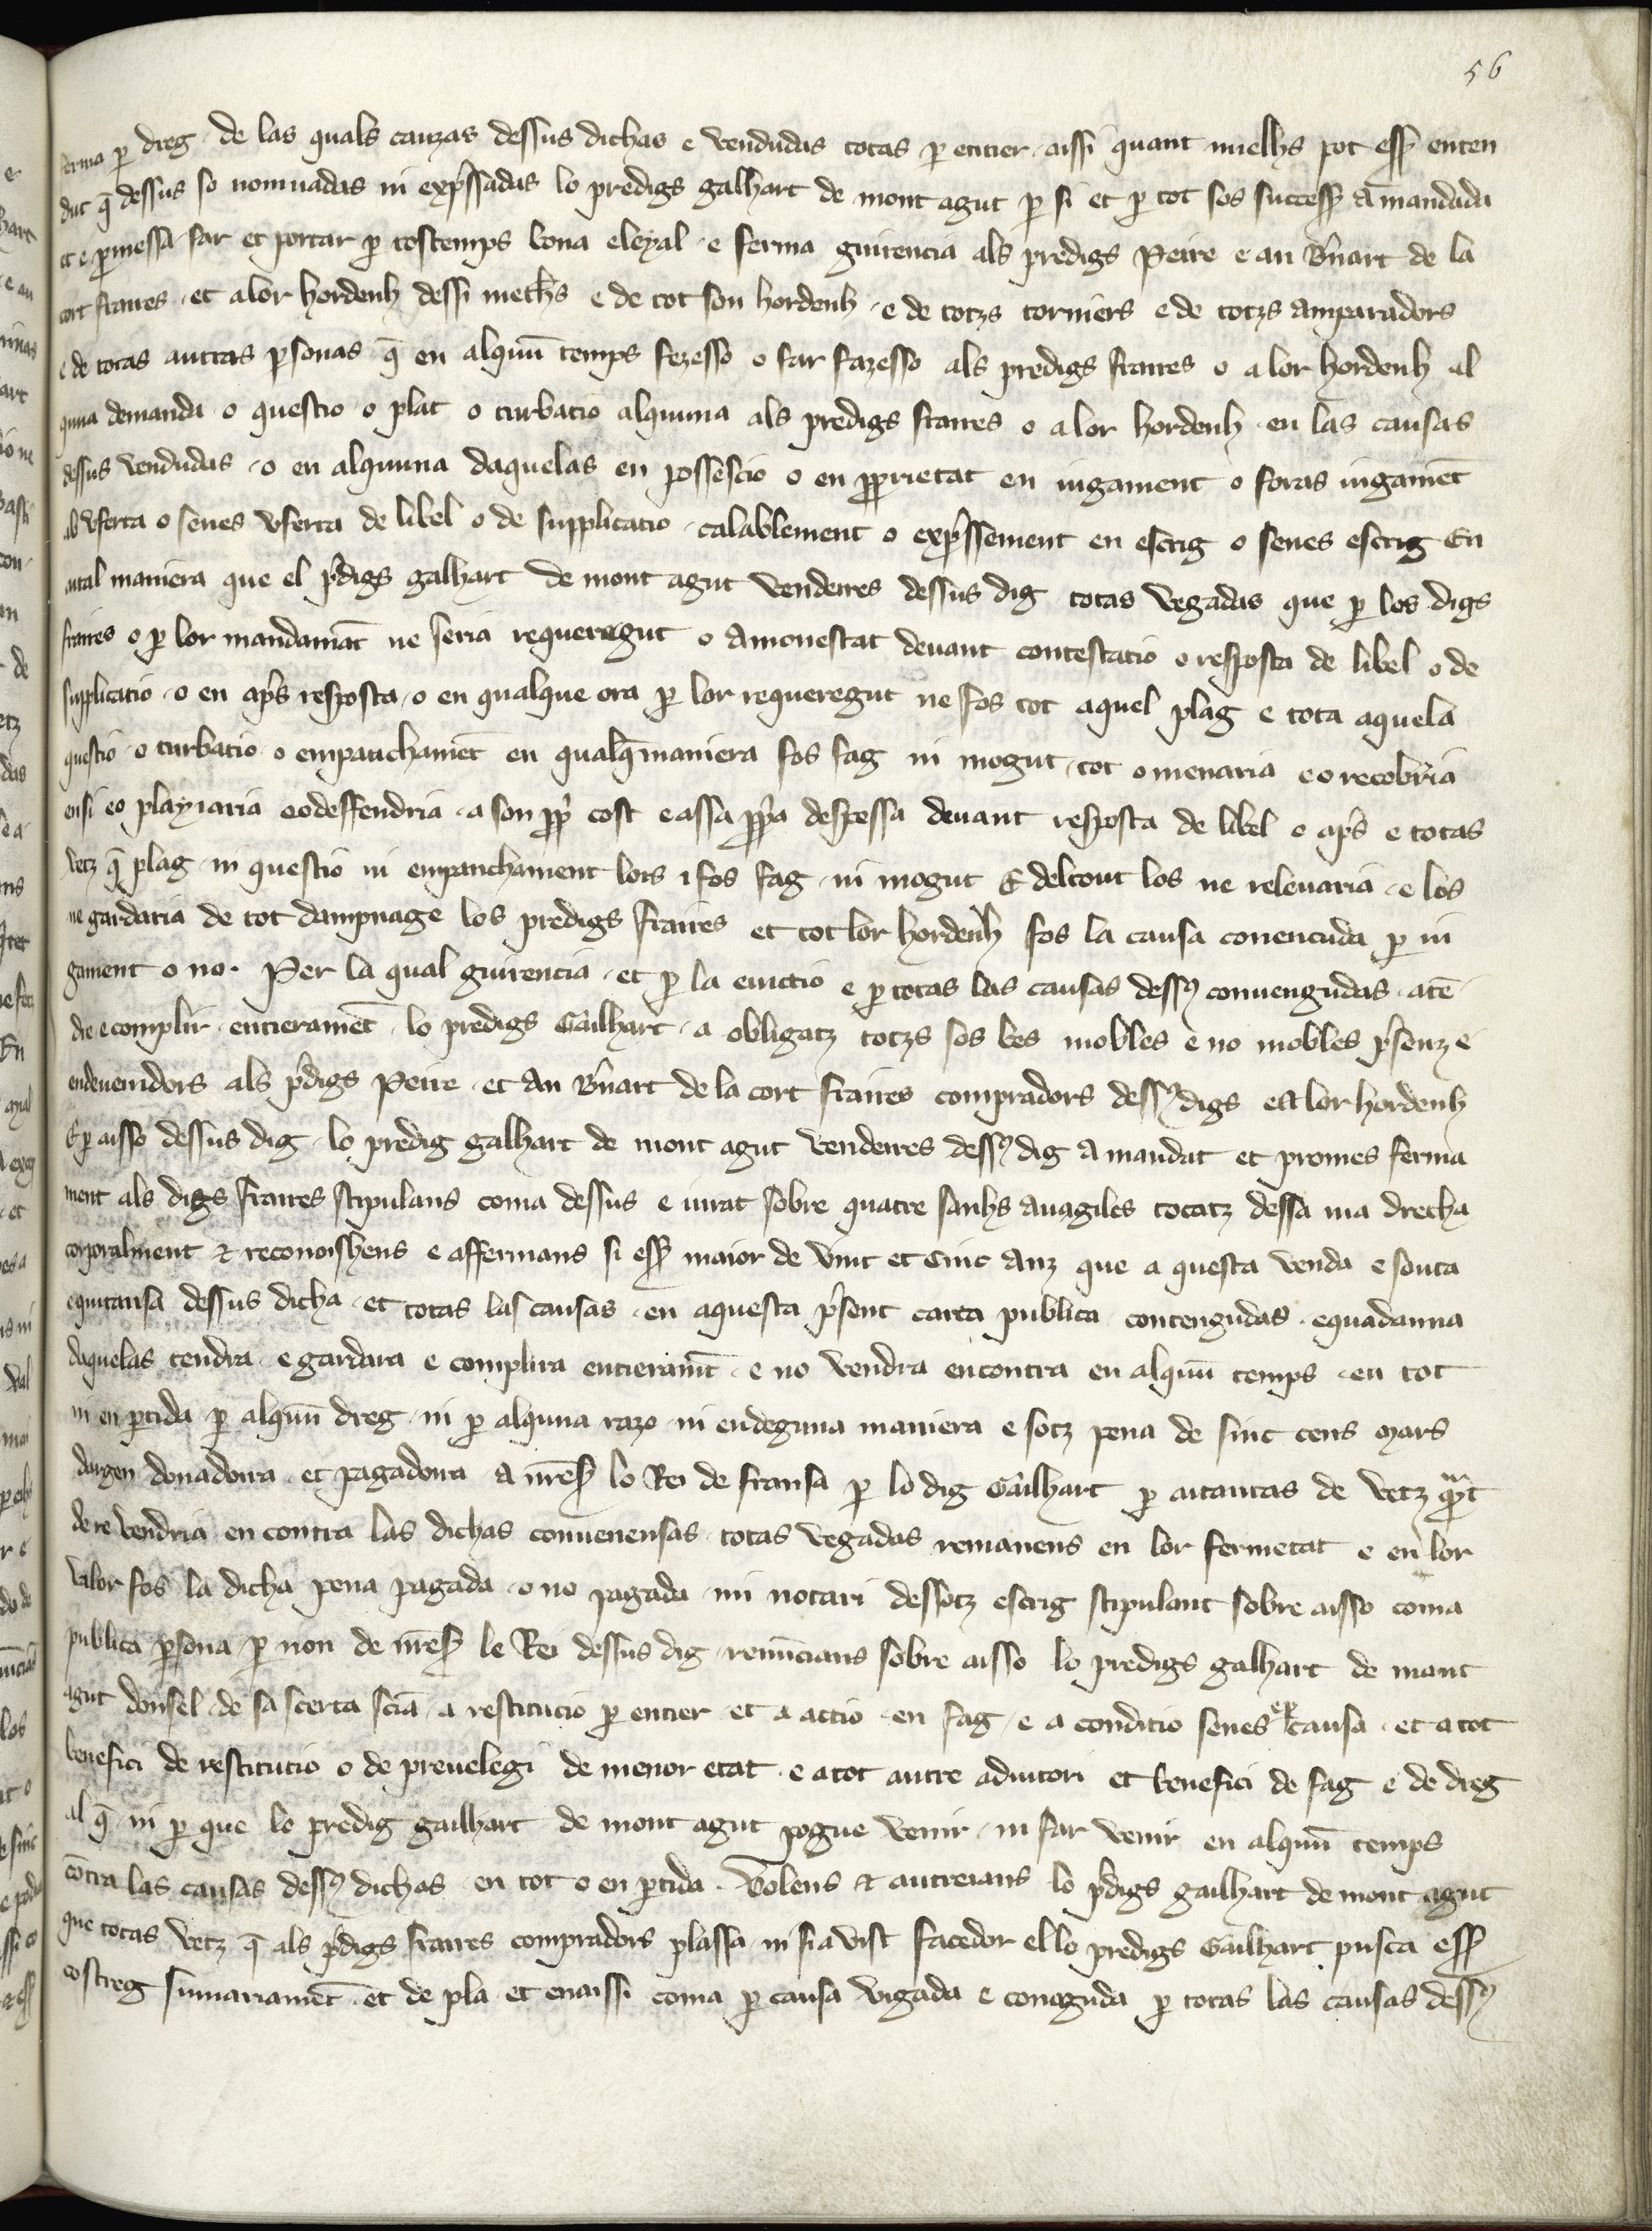 56
ferma p dreg · de las quals cauzas dessus dichas e vendudas totas p entier · aissi quant mielhs pot ess enten
dut q̄ dessus so nomnadas ni exp̄ssadas lo predigs galhart de mont agut p si et p tot sos success a mandada
et e p̄messa far et portar p tostemps bona e leyal · e ferma guirencia als predigs Peire e an Bn̄art de la
cort fraires · et a lor hordenh dessi meths e de tot son hordenh · e de totzs torniers e de totzs amparadors
e de totas autras p̄sonas q̄ en alquū temps fezesso o far fazesso als predigs fraires o a lor hordenh al
quna demanda o questio o plat o turbatio alquna als predigs fraires o a lor hordenh · en las causas
dessus vendudas · o en alquna daquelas en possescio o en pprietat en iugament o foras iugamēt
ab vferta o senes vferta de libel o de supplicatio · calablement o exp̄ssement en escrig o senes escrig En
aital maniera que el p̄digs galhart de mont agut vendeires dessus dig totas vegadas que p los digs
fraires o p lor mandamāt ne seria requeregut o amonestat devant contestatio o resposta de libel o de
supplicatio · o en ap̄s resposta · o en qualque ora p lor requeregut ne fos tot aquel plag e tota aquela
questio · o turbatio o empachamēt en qualq̄ maniera fos fag ni mogut · tot o menaria e o recobr̄ia
en si e o playiaria e o deffendria · a son pp̄ cost e assa pp̄a despessa devant resposta de libel e ap̄s e totas
vetz q̄ plag · ni questio ni empachament lors i fos fag · ni mogut E deltout los ne relevaria · e los
ne gardaria de tot dampnage los predigs fraires et tot lor hordenh fos la causa convencuda p iu
gament o no · Per la qual guirencia · et p la evictio e p totas las causas dess9 convengudas · atē
dre e complir · entieramēt · lo predigs Gailhart · a obligatz totzs sos bes mobles e no mobles p̄senz e
endevenidors als p̄digs Peire · et an Bn̄art de la cort fraires compradors dess9 digs e a lor hordenh
E p aisso dessus dig · lo predig galhart de mont agut vendeires dess9 dig a mandat et promes ferma
ment als digs fraires stipulans coma dessus e iurat sobre quatre sanhs avagiles tocatz dessa ma drecha
corporalment & reconoishens e affermans si ess maior de vint et cinc anz que a questa venda e souta
e quitansa dessus dicha · et totas las causas · en aquesta p̄sent carta publica contengudas · e quadauna
daquelas tendra · e gardara e complira entieramēt · e no vendra encontra en alquū temps · en tot
ni en p̄tida p alquū dreg · ni p alquna razo ni en deguna maniera e sotz pena de sinc cens mars
dargen donadoira · et pagadoira a n̄res lo Rei de fransa p lo dig Gailhart p aitantas de vetz quāt
de re vendria en contra las dichas convenensas · totas vegadas remanens en lor fermetat e en lor
valor fos la dicha pena pagada · o no pagada · mi notari dessotz escrig stipulant sobre aisso coma
publica p̄sona · p non de n̄res le Rei dessus dig · renūcians sobre aisso lo predigs galhart de mont
agut donsel · de sa scerta sciā · a restitucio p entier · et a actio · en fag · e a conditio senes causa · et a tot
benefici de restitucio o de previlegi de menor etat · e a tot autre adiutori et benefici de fag e de dreg
al q̄ · ni p que lo predig gailhart de mont agut pogue venir · ni far venir en alquū temps
cōtra las causas dess9 dichas en tot o en p̄tida · Volens & autreians lo p̄digs gailhart de mont agut
que totas vetz q̄ als p̄digs fraires compradors plassa ni sia vist facedor el lo predigs Gailhart pusca ess
costreg sumariamēt · et de pla et enaissi coma p causa vigada e conoguda p totas las causas dess9